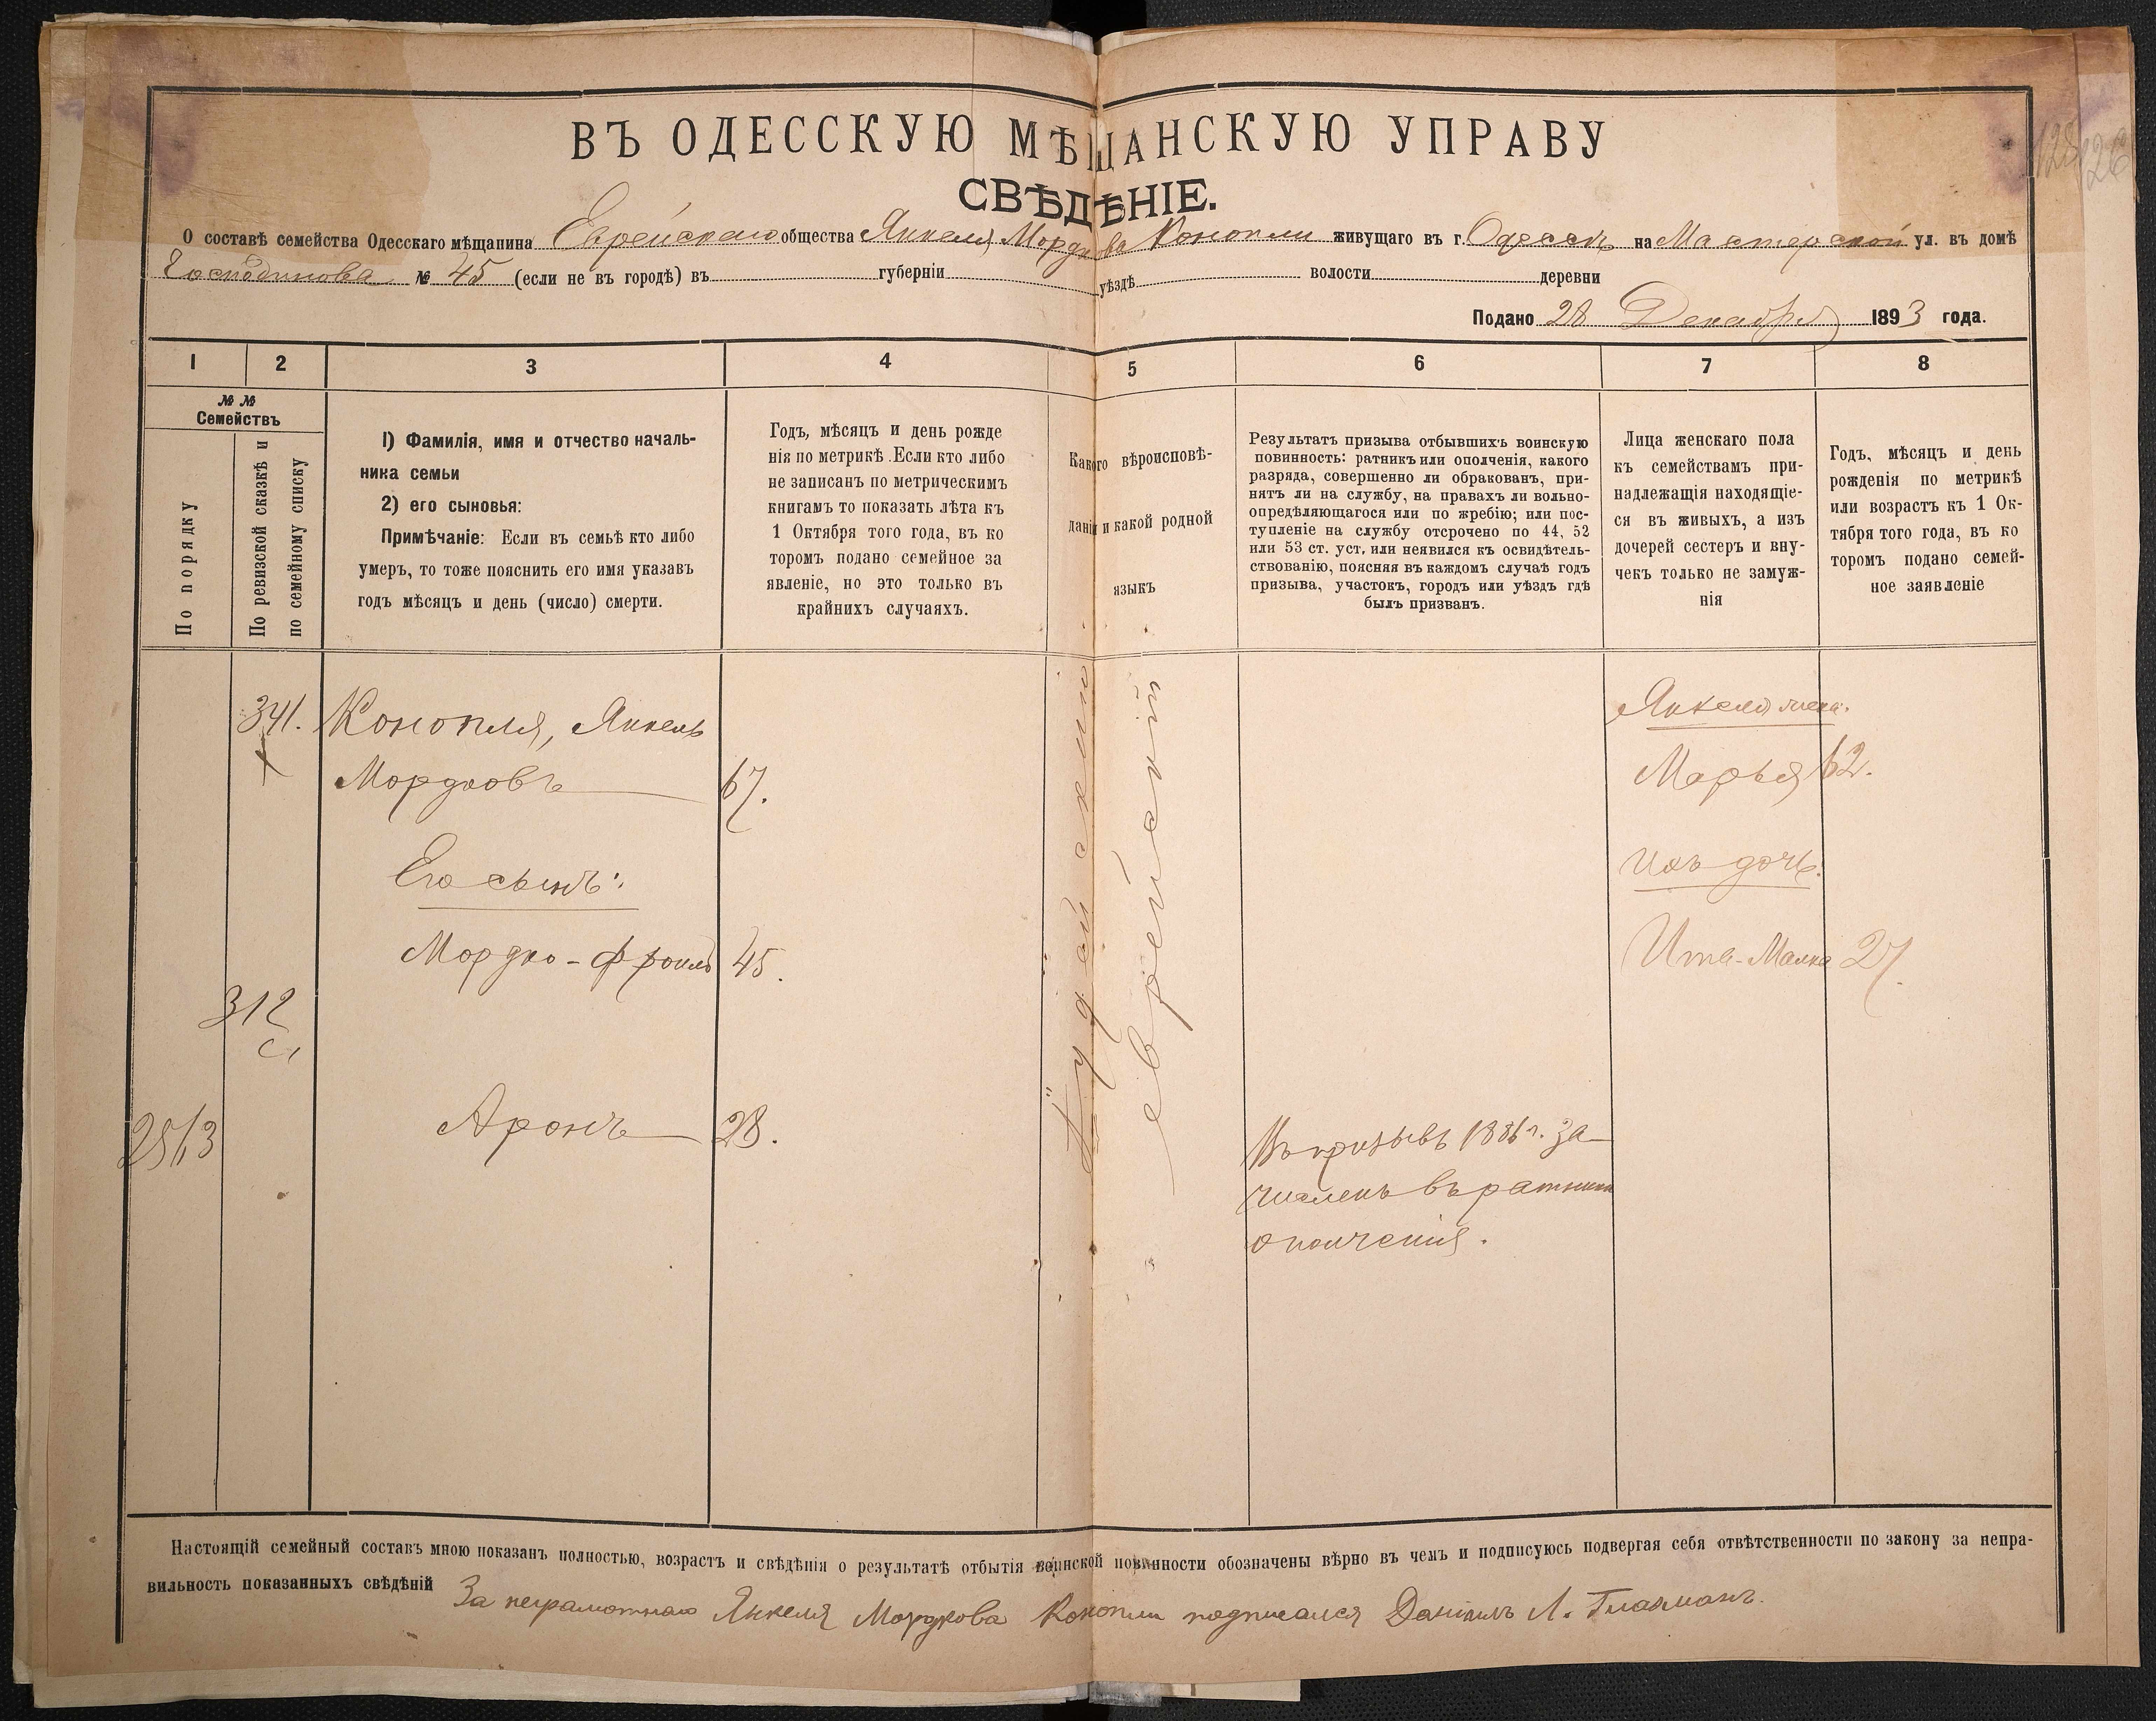 ВЪ ОДЕССКУЮ МѢЩАНСКУЮ УПРАВУ
СВѢДѢНІЕ.
О составѣ семейства Одесскаго мѣщанина Еврейскаго общества Янкеля Мордкова Конопли живущаго въ г. Одессѣ на Мастерской ул. въ домѣ
Господинова № 45 (если не въ городѣ) въ губерніи уѣздѣ волости деревни
Подано 28 Декабря 1893 года.
1 2 3 4 5 6 7 8
№ №
Семействъ
По порядку
По ревизской сказкѣ и
по семейному списку
1) Фамилія, имя и отчество началь-
ника семьи
2) его сыновья:
Примѣчаніе: Если въ семьѣ кто либо
умеръ, то тоже пояснить его имя указавъ
годъ мѣсяцъ и день (число) смерти.
Годъ, мѣсяцъ и день рожде
нія по метрикѣ. Если кто либо
не записанъ по метрическимъ
книгамъ то показать лѣта къ
1 Октября того года, въ ко
торомъ подано семейное за
явленіе, но это только въ
крайнихъ случаяхъ.
Какого вѣроисповѣ-
данія и какой родной
языкъ
Результатъ призыва отбывшихъ воинскую
повинность: ратникъ или ополченія, какого
разряда, совершенно ли обракованъ, при-
нятъ ли на службу, на правахъ ли вольно-
опредѣляющагося или по жребію; или пос-
тупленіе на службу отсрочено по 44, 52
или 53 ст. уст. или неявился къ освидѣтель-
ствованію, поясняя въ каждомъ случаѣ годъ
призыва, участокъ, городъ или уѣздъ гдѣ
былъ призванъ.
Лица женскаго пола
къ семействамъ при-
надлежащія находящіе-
ся въ живыхъ, а изъ
дочерей сестеръ и вну-
чекъ только не замуж-
нія
Годъ, мѣсяцъ и день
рожденія по метрикѣ
или возрастъ къ 1 Ок-
тября того года, въ ко
торомъ подано семей-
ное заявленіе
341. Конопля, Янкель
Мордковъ 67.
Его сынъ:
Мордко-Фроимъ 45.
312
Аронъ 28.
2513
Іудейскаго
еврейскій
Въ призывъ 1886 г. за-
численъ въ ратники
ополченія.
Янкеля жена:
Марья 62.
Ихъ дочь:
Ита-Малка 27.
Настоящій семейный составъ мною показанъ полностью, возрастъ и свѣдѣнія о результатѣ отбытія воинской повинности обозначены вѣрно въ чемъ и подписуюсь подвергая себя отвѣтственности по закону за непра-
вильность показанныхъ свѣдѣній За неграмотнаго Янкеля Мордкова Конопли подписался Даніилъ Л. Глазманъ.